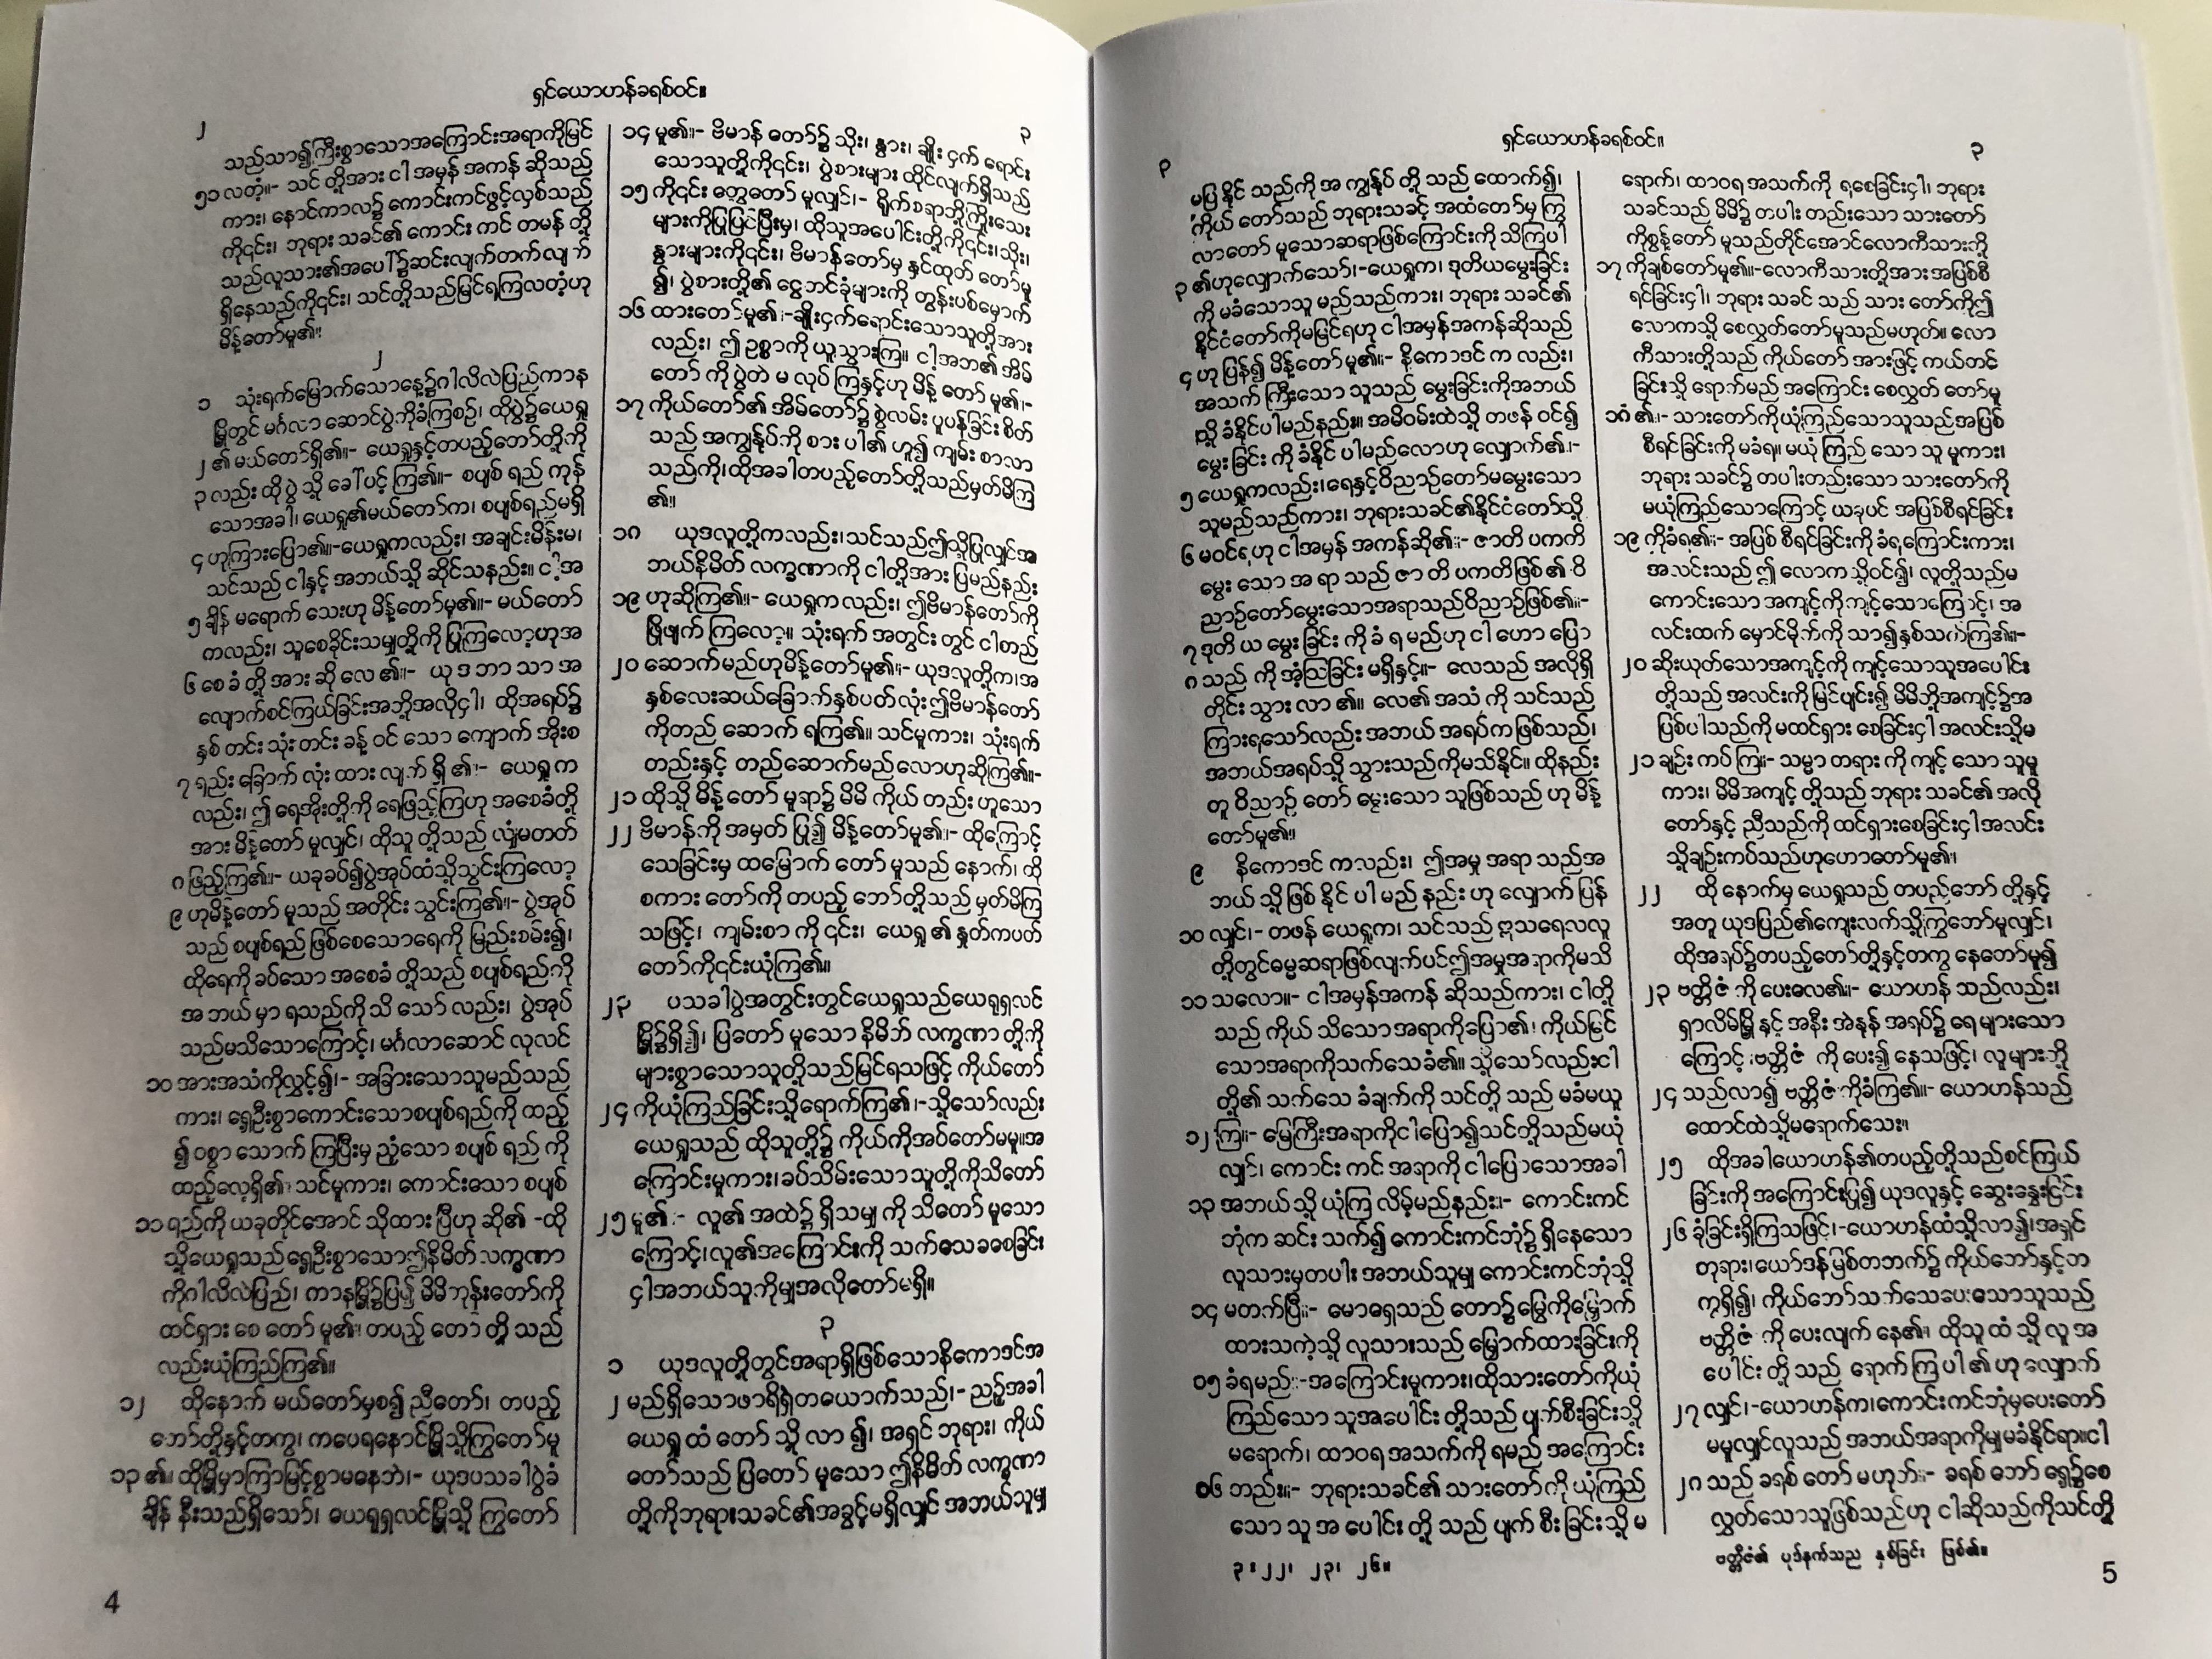 ရှင်ယောဟန်ခရစ်ဝင်။
၂
၃
သည်သာ၍ကြီးစွာသောအကြောင်းအရာကိုမြင်
၅၁ လတံ့။- သင် တို့အား ငါ အမှန် အကန် ဆိုသည်
ကား၊ နောင်ကာလ၌ ကောင်းကင်ဖွင့်လှစ်သည်
ကို၎င်း၊ ဘုရား သခင်၏ ကောင်း ကင် တမန် တို့
သည်လူသား၏အပေါ်၌ဆင်းလျက်တက်လျက်
ရှိနေသည်ကို၎င်း၊ သင်တို့သည်မြင်ရကြလတံ့ဟု
မိန့်တော်မူ၏။
၂
၁ သုံးရက်မြောက်သောနေ့၌ဂါလိလဲပြည်ကာန
မြို့တွင် မင်္ဂလာ ဆောင်ပွဲကိုခံကြစဉ်၊ ထိုပွဲ၌ယေရှု
၂ ၏ မယ်တော်ရှိ၏။- ယေရှုနှင့်တပည့်တော်တို့ကို
၃ လည်း ထိုပွဲ သို့ ခေါ်ပင့် ကြ၏။- စပျစ် ရည် ကုန်
သောအခါ၊ ယေရှု၏မယ်တော်က၊ စပျစ်ရည်မရှိ
၄ ဟုကြားပြော၏။-ယေရှုကလည်း၊ အချင်းမိန်းမ၊
သင်သည် ငါနှင့် အဘယ်သို့ ဆိုင်သနည်း။ ငါ့အ
၅ ချိန် မရောက် သေးဟု မိန့်တော်မူ၏။- မယ်တော်
ကလည်း၊ သူစေခိုင်းသမျှတို့ကို ပြုကြလော့ဟုအ
၆ စေ ခံ တို့ အား ဆို လေ ၏။- ယု ဒ ဘာ သာ အ
လျောက်စင်ကြယ်ခြင်းအဘို့အလိုငှါ၊ ထိုအရပ်၌
နှစ် တင်း သုံး တင်း ခန့် ဝင် သော ကျောက် အိုးစ
၇ ရည်း ခြောက် လုံး ထား လျက် ရှိ ၏။- ယေရှု က
လည်း၊ ဤ ရေအိုးတို့ကို ရေဖြည့်ကြဟု အစေခံတို့
အား မိန့်တော် မူလျှင်၊ ထိုသူ တို့သည် လျှံမတတ်
၈ ဖြည့်ကြ၏။- ယခုခပ်၍ပွဲအုပ်ထံသို့သွင်းကြလော့
၉ ဟုမိန့်တော် မူသည် အတိုင်း သွင်းကြ၏။- ပွဲအုပ်
သည် စပျစ်ရည် ဖြစ်စေသောရေကို မြည်းစမ်း၍၊
ထိုရေကို ခပ်သော အစေခံ တို့သည် စပျစ်ရည်ကို
အ ဘယ် မှာ ရသည်ကို သိ သော် လည်း၊ ပွဲအုပ်
သည်မသိသောကြောင့်၊ မင်္ဂလာဆောင် လုလင်
၁၀ အားအသံကိုလွှင့်၍၊- အခြားသောသူမည်သည်
ကား၊ ရှေ့ဦးစွာကောင်းသောစပျစ်ရည်ကို ထည့်
၍ ဝစွာ သောက် ကြပြီးမှ ညံ့သော စပျစ် ရည် ကို
ထည့်လေ့ရှိ၏။ သင်မူကား၊ ကောင်းသော စပျစ်
၁၁ ရည်ကို ယခုတိုင်အောင် သိုထား ပြီဟု ဆို၏ -ထို
သို့ယေရှုသည်ရှေ့ဦးစွာသောဤနိမိတ် လက္ခဏာ
ကိုဂါလိလဲပြည်၊ ကာနမြို့၌ပြ၍ မိမိဘုန်းတော်ကို
ထင်ရှား စေ တော် မူ၏။ တပည့် တော် တို့ သည်
လည်းယုံကြည်ကြ၏။
၁၂ ထိုနောက် မယ်တော်မှစ၍ ညီတော်၊ တပည့်
တော်တို့နှင့်တကွ၊ ကပေရနောင်မြို့သို့ကြွတော်မူ
၁၃ ၏။ ထိုမြို့မှာကြာမြင့်စွာမနေဘဲ၊- ယုဒပသခါပွဲခံ
ချိန် နီးသည်ရှိသော်၊ ယေရုရှလင်မြို့သို့ ကြွတော်
၁၄ မူ၏။- ဗိမာန် တော်၌ သိုး၊ နွား၊ ချိုး ငှက် ရောင်း
သောသူတို့ကို၎င်း၊ ပွဲစားများ ထိုင်လျက်ရှိသည်
၁၅ ကို၎င်း တွေ့တော် မူလျှင်၊- ရိုက်စရာဘို့ကြိုးသေး
များကိုပြုပြင်ပြီးမှ၊ ထိုသူအပေါင်းတို့ကို၎င်း၊သိုး၊
နွားများကို၎င်း၊ ဗိမာန်တော်မှ နှင်ထုတ် တော်မူ
၍၊ ပွဲစားတို့၏ ငွေဘင်ခုံများကို တွန်းပစ်မှောက်
၁၆ ထားတော်မူ၏။-ချိုးငှက်ရောင်းသောသူတို့အား
လည်း၊ ဤ ဥစ္စာကို ယူသွားကြ။ ငါ့အဘ၏ အိမ်
တော် ကို ပွဲတဲ မ လုပ် ကြနှင့်ဟု မိန့် တော် မူ၏၊-
၁၇ ကိုယ်တော်၏ အိမ်တော်၌ စွဲလမ်း ပူပန်ခြင်း စိတ်
သည် အကျွန်ုပ်ကို စား ပါ၏ ဟူ၍ ကျမ်း စာလာ
သည်ကို၊ထိုအခါတပည့်တော်တို့သည်မှတ်မိကြ
၏။
၁၈ ယုဒလူတို့ကလည်း၊သင်သည်ဤသို့ပြုလျှင်အ
ဘယ်နိမိတ် လက္ခဏာကို ငါတို့အား ပြမည်နည်း
၁၉ ဟုဆိုကြ၏။- ယေရှုက လည်း၊ ဤဗိမာန်တော်ကို
ဖြိုဖျက် ကြလော့။ သုံးရက် အတွင်း တွင် ငါတည်
၂၀ ဆောက်မည်ဟုမိန့်တော်မူ၏။- ယုဒလူတို့က၊အ
နှစ်လေးဆယ်ခြောက်နှစ်ပတ်လုံးဤဗိမာန်တော်
ကိုတည် ဆောက် ရကြ၏။ သင်မူကား၊ သုံးရက်
တည်းနှင့် တည်ဆောက်မည်လောဟုဆိုကြ၏။-
၂၁ ထိုသို့ မိန့် တော် မူရာ၌ မိမိ ကိုယ် တည်း ဟူသော
၂၂ ဗိမာန်ကို အမှတ် ပြု၍ မိန့်တော်မူ၏။- ထိုကြောင့်
သေခြင်းမှ ထမြောက် တော် မူသည် နောက်၊ ထို
စကား တော်ကို တပည့် တော်တို့သည် မှတ်မိကြ
သဖြင့်၊ ကျမ်းစာ ကို ၎င်း၊ ယေရှု ၏ နှုတ်ကပတ်
တော်ကို၎င်းယုံကြ၏။
၂၃ ပသခါပွဲအတွင်းတွင်ယေရှုသည်ယေရုရှလင်
မြို့၌ရှိ၍၊ ပြတော် မူသော နိမိတ် လက္ခဏာ တို့ကို
များစွာသောသူတို့သည်မြင်ရသဖြင့် ကိုယ်တော်
၂၄ ကိုယုံကြည်ခြင်းသို့ရောက်ကြ၏၊-သို့သော်လည်း
ယေရှုသည် ထိုသူတို့၌ ကိုယ်ကိုအပ်တော်မမူ။အ
ကြောင်းမူကား၊ခပ်သိမ်းသောသူတို့ကိုသိတော်
၂၅ မူ၏ - လူ၏ အထဲ၌ ရှိသမျှ ကို သိတော် မူသော
ကြောင့်၊လူ၏အကြောင်းကို သက်သေခံစေခြင်း
ငှါအဘယ်သူကိုမျှအလိုတော်မရှိ။
၃
၁ ယုဒလူတို့တွင်အရာရှိဖြစ်သောနိကောဒင်အ
၂ မည်ရှိသောဖာရိရှဲတယောက်သည်၊- ညဉ့်အခါ
ယေရှု ထံ တော် သို့ လာ ၍၊ အရှင် ဘုရား၊ ကိုယ်
တော်သည် ပြတော် မူသော ဤနိမိတ် လက္ခဏာ
တို့ကိုဘုရားသခင်၏အခွင့်မရှိလျှင် အဘယ်သူမျှ
4
ရှင်ယောဟန်ခရစ်ဝင်။
၃
၃
မပြ နိုင် သည်ကို အ ကျွန်ုပ် တို့ သည် ထောက်၍၊
ကိုယ် တော်သည် ဘုရားသခင့် အထံတော်မှ ကြွ
လာတော် မူသောဆရာဖြစ်ကြောင်းကို သိကြပါ
၃ ၏ဟုလျှောက်သော်၊-ယေရှုက၊ ဒုတိယမွေးခြင်း
ကို မခံသောသူ မည်သည်ကား၊ ဘုရား သခင်၏
နိုင်ငံတော်ကိုမမြင်ရဟု ငါအမှန်အကန်ဆိုသည်
၄ ဟု ပြန်၍ မိန့်တော်မူ၏။- နိကောဒင် က လည်း၊
အသက် ကြီးသော သူသည် မွေးခြင်းကိုအဘယ်
သို့ ခံနိုင်ပါမည်နည်း။ အမိဝမ်းထဲသို့ တဖန် ဝင်၍
မွေး ခြင်း ကို ခံနိုင် ပါမည်လောဟု လျှောက်၏၊-
၅ ယေရှုကလည်း၊ရေနှင့်ဝိညာဉ်တော်မမွေးသော
သူမည်သည်ကား၊ ဘုရားသခင်၏နိုင်ငံတော်သို့
၆ မဝင်ရဟု ငါအမှန် အကန်ဆို၏။- ဇာတိ ပကတိ
မွေး သော အ ရာ သည် ဇာ တိ ပကတိဖြစ် ၏ ဝိ
ညာဉ်တော်မွေးသောအရာသည်ဝိညာဉ်ဖြစ်၏။-
၇ ဒုတိ ယ မွေး ခြင်း ကို ခံ ရ မည်ဟု ငါ ဟော ပြော
၈ သည် ကို အံ့ဩခြင်း မရှိနှင့်။- လေသည် အလိုရှိ
တိုင်း သွား လာ ၏။ လေ၏ အသံ ကို သင်သည်
ကြားရသော်လည်း အဘယ် အရပ်က ဖြစ်သည်၊
အဘယ်အရပ်သို့ သွားသည်ကိုမသိနိုင်။ ထိုနည်း
တူ ဝိညာဉ် တော် မွေးသော သူဖြစ်သည် ဟု မိန့်
တော်မူ၏။
၉ နိကောဒင် ကလည်း၊ ဤအမှု အရာ သည်အ
ဘယ် သို့ ဖြစ် နိုင် ပါ မည် နည်း ဟု လျှောက် ပြန်
၁၀ လျှင်၊- တဖန် ယေရှုက၊ သင်သည် ဣသရေလလူ
တို့တွင်ဓမ္မဆရာဖြစ်လျက်ပင်ဤအမှုအရာကိုမသိ
၁၁ သလော။- ငါအမှန်အကန် ဆိုသည်ကား၊ ငါတို့
သည် ကိုယ် သိသော အရာကိုပြော၏၊ ကိုယ်မြင်
သောအရာကိုသက်သေခံ၏။ သို့သော်လည်းငါ
တို့၏ သက်သေ ခံချက်ကို သင်တို့ သည် မခံမယူ
၁၂ ကြ။- မြေကြီးအရာကိုငါပြော၍သင်တို့သည်မယုံ
လျှင်၊ ကောင်း ကင် အရာကို ငါပြောသောအခါ
၁၃ အဘယ် သို့ ယုံကြ လိမ့်မည်နည်း၊- ကောင်းကင်
ဘုံက ဆင်း သက်၍ ကောင်းကင်ဘုံ၌ ရှိနေသော
လူသားမှတပါး အဘယ်သူမျှ ကောင်းကင်ဘုံသို့
၁၄ မတက်ပြီ။- မောရှေသည် တော၌ မြွေကိုမြှောက်
ထားသကဲ့သို့ လူသားသည် မြှောက်ထားခြင်းကို
၁၅ ခံရမည် -အကြောင်းမူကား၊ထိုသားတော်ကိုယုံ
ကြည်သော သူအပေါင်း တို့သည် ပျက်စီးခြင်းသို့
မရောက်၊ ထာဝရ အသက်ကို ရမည် အကြောင်း
၁၆ တည်း။- ဘုရားသခင်၏ သားတော်ကို ယုံကြည်
သော သူ အ ပေါင်း တို့ သည် ပျက် စီး ခြင်း သို့ မ
၃ း ၂၂၊ ၂၃၊ ၂၆။
ရောက်၊ ထာဝရ အသက်ကို ရစေခြင်းငှါ၊ ဘုရား
သခင်သည် မိမိ၌ တပါး တည်းသော သားတော်
ကိုစွန့်တော် မူသည်တိုင်အောင်လောကီသားကို
၁၇ ကိုချစ်တော်မူ၏။-လောကီသားတို့အား အပြစ်စီ
ရင်ခြင်းငှါ၊ ဘုရား သခင် သည် သား တော်ကိုဤ
လောကသို့ စေလွှတ်တော်မူသည်မဟုတ်။ လော
ကီသားတို့သည် ကိုယ်တော် အားဖြင့် ကယ်တင်
ခြင်းသို့ ရောက်မည် အကြောင်း စေလွှတ် တော်မူ
၁၈ ၏၊- သားတော်ကိုယုံကြည်သောသူသည်အပြစ်
စီရင်ခြင်းကို မခံရ။ မယုံ ကြည် သော သူ မူကား၊
ဘုရား သခင်၌ တပါးတည်းသော သားတော်ကို
မယုံကြည်သောကြောင့် ယခုပင် အပြစ်စီရင်ခြင်း
၁၉ ကိုခံရ၏။- အပြစ် စီရင်ခြင်းကို ခံရကြောင်းကား၊
အလင်းသည် ဤ လောက သို့ဝင်၍၊ လူတို့သည်မ
ကောင်းသော အကျင့်ကို ကျင့်သောကြောင့်၊ အ
လင်းထက် မှောင်မိုက်ကို သာ၍နှစ်သက်ကြ၏။-
၂၀ ဆိုးယုတ်သောအကျင့်ကို ကျင့်သောသူအပေါင်း
တို့သည် အလင်းကို မြင်ပျင်း၍ မိမိတို့အကျင့်၌အ
ပြစ်ပါသည်ကို မထင်ရှား စေခြင်းငှါ အလင်းသို့မ
၂၁ ချဉ်း ကပ် ကြ။- သမ္မာ တရား ကို ကျင့် သော သူမူ
ကား၊ မိမိအကျင့် တို့သည် ဘုရား သခင်၏ အလို
တော်နှင့် ညီသည်ကို ထင်ရှားစေခြင်းငှါအလင်း
သို့ချဉ်းကပ်သည်ဟုဟောတော်မူ၏၊
၂၂ ထို နောက်မှ ယေရှုသည် တပည့်တော် တို့နှင့်
အတူ ယုဒပြည်၏ကျေးလက်သို့ကြွတော်မူလျှင်၊
ထိုအရပ်၌တပည့်တော်တို့နှင့်တကွ နေတော်မူ၍
၂၃ ဗတ္တိဇံ ကို ပေးလေ၏။- ယောဟန် သည်လည်း၊
ရှာလိမ်မြို့ နှင့် အနီး အနားန် အရပ်၌ ရေ များသော
ကြောင့် ဗတ္တိဇံ ကို ပေး၍ နေသဖြင့်၊ လူ များတို့
၂၄ သည်လာ၍ ဗတ္တိဇံ ကိုခံကြ၏။- ယောဟန်သည်
ထောင်ထဲသို့မရောက်သေး။
၂၅ ထိုအခါယောဟန်၏တပည့်တို့သည်စင်ကြယ်
ခြင်းကို အကြောင်းပြု၍ ယုဒလူနှင့် ဆွေးနွေးငြင်း
၂၆ ခုံခြင်းရှိကြသဖြင့်၊-ယောဟန်ထံသို့လာ၍၊အရှင်
ဘုရား၊ယော်ဒန်မြစ်တဘက်၌ ကိုယ်တော်နှင့်တ
ကွရှိ၍၊ ကိုယ်တော်သက်သေပေးသောသူသည်
ဗတ္တိဇံ ကို ပေးလျက် နေ၏၊ ထိုသူ ထံ သို့ လူ အ
ပေါင်း တို့ သည် ရောက် ကြ ပါ ၏ ဟု လျှောက်
၂၇ လျှင်၊-ယောဟန်က၊ကောင်းကင်ဘုံမှပေးတော်
မမူလျှင်လူသည် အဘယ်အရာကိုမျှမခံနိုင်ရာ။ငါ
၂၈ သည် ခရစ် တော် မဟုတ်။- ခရစ် တော် ရှေ့၌စေ
လွှတ်သောသူဖြစ်သည်ဟု ငါဆိုသည်ကိုသင်တို့
ဗတ္တိဇံ၏ ပုဒ်နက်သည နှစ်ခြင်း ဖြစ်၏။
5